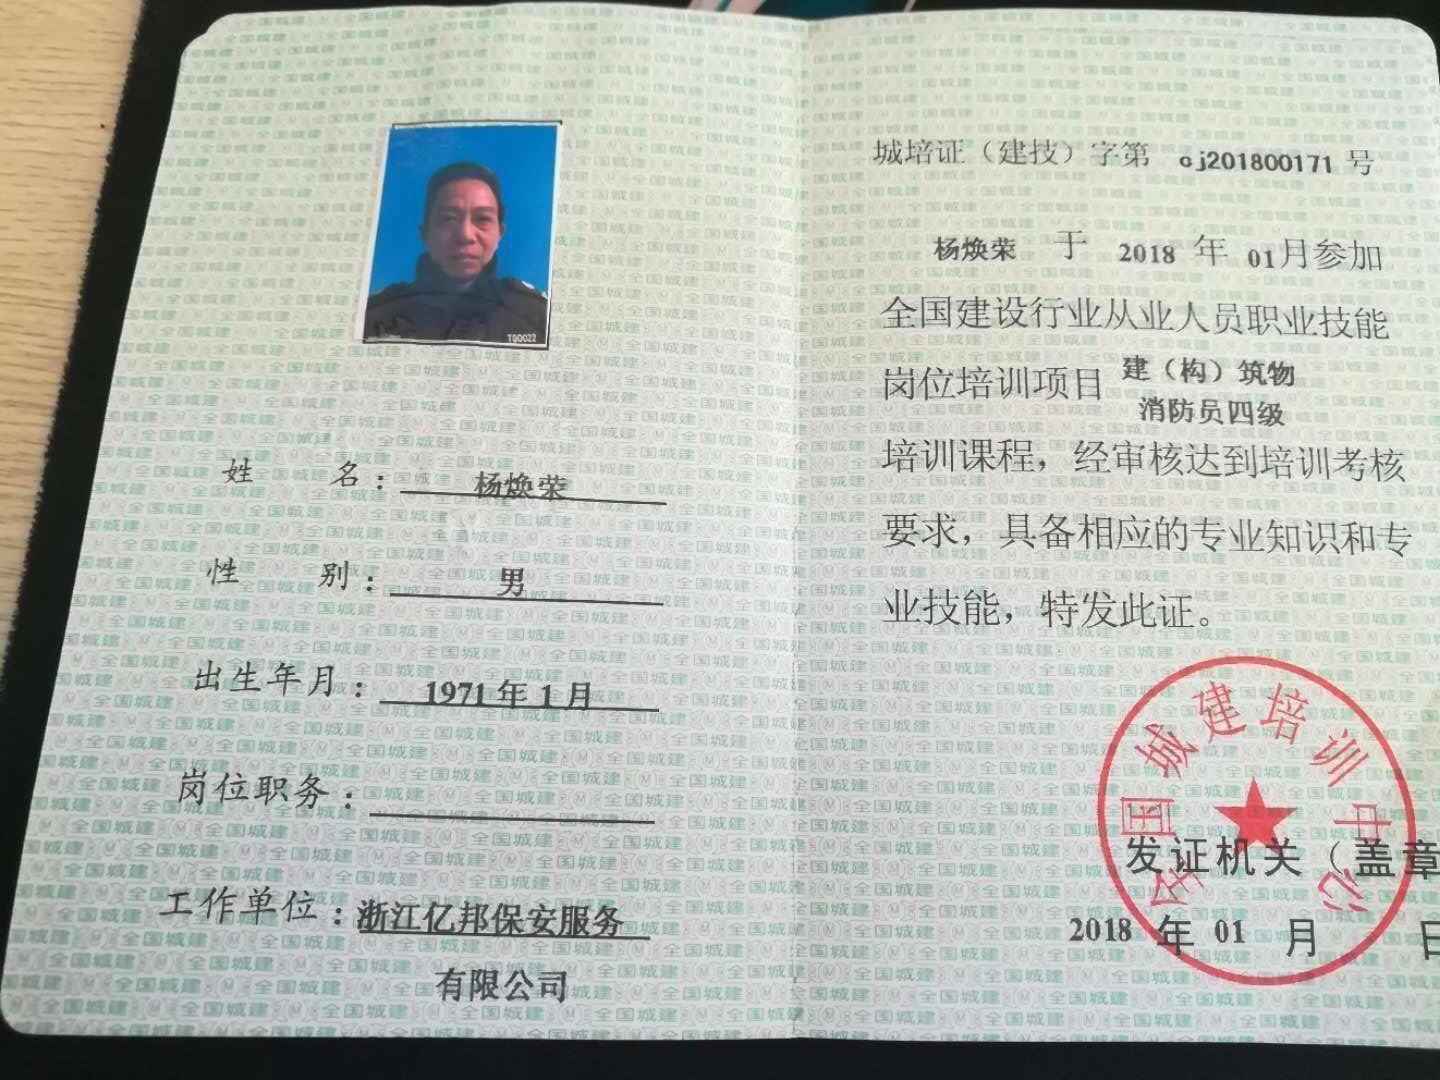 T00022
姓 名：杨焕荣
性 别：男
出生年月：1971年1月
岗位职务：
工作单位：浙江亿邦保安服务
有限公司
城培证（建技）字第 cj201800171 号
杨焕荣 于 2018 年 01月参加
全国建设行业从业人员职业技能
岗位培训项目 建（构）筑物
消防员四级
培训课程，经审核达到培训考核
要求，具备相应的专业知识和专
业技能，特发此证。
全国城建培训中心
发证机关（盖章
2018 年 01 月 日